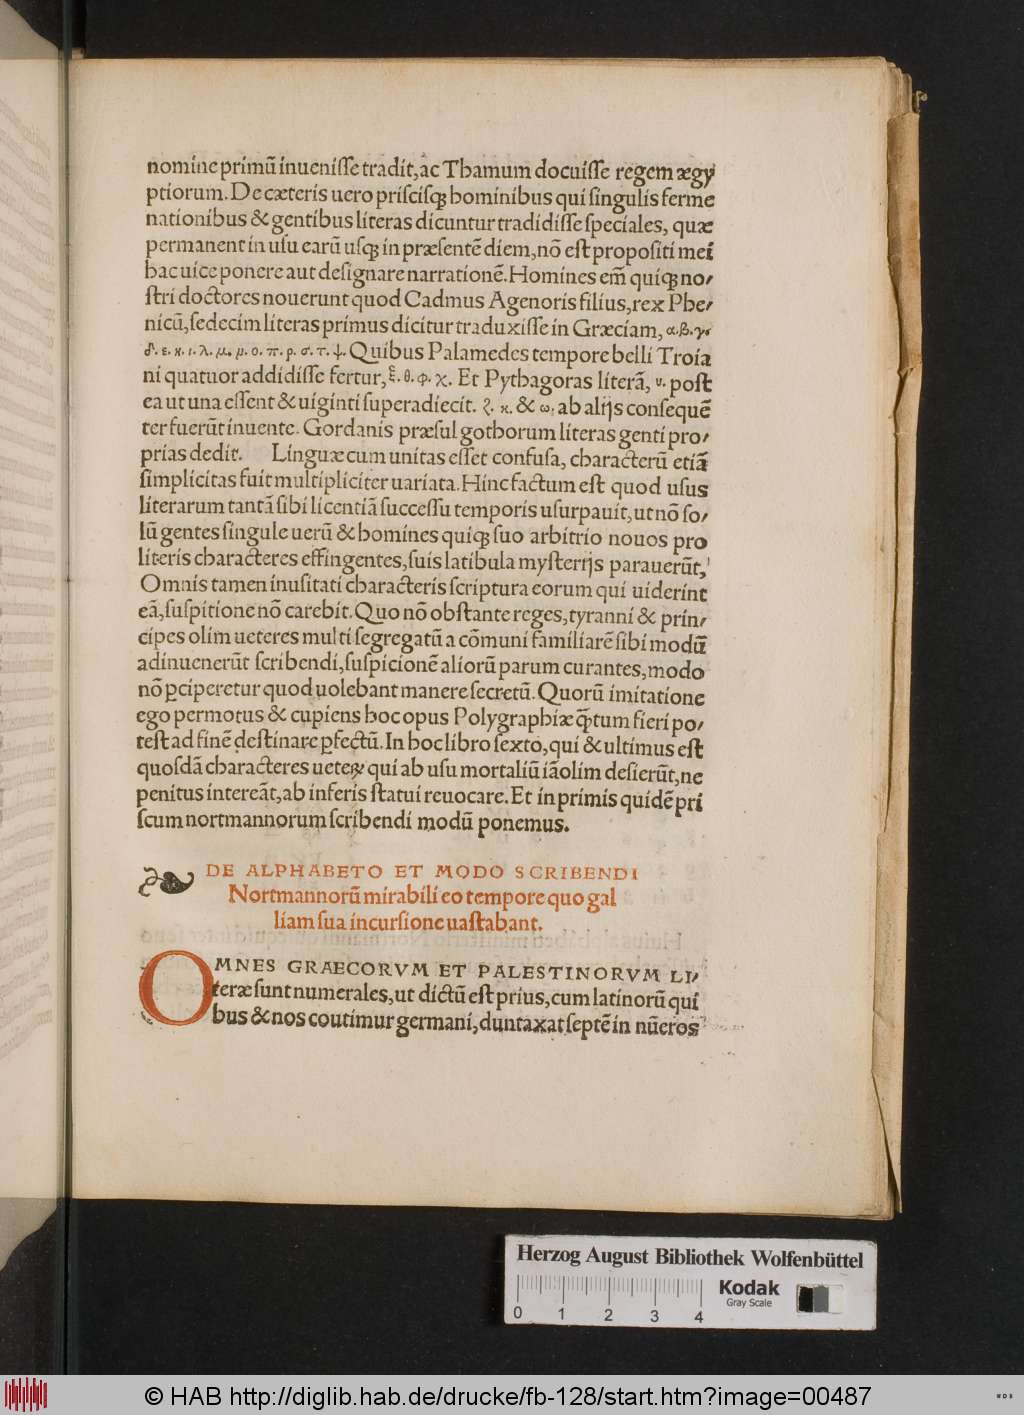 nomine primū inuenisse tradit, ac Thamum docuisse regem ægy
ptiorum. De cæteris uero priscisq; hominibus qui singulis ferme
nationibus & gentibus literas dicuntur tradidisse speciales, quæ
permanent in usu earū usq; in præsentē diem, nō est propositi mei
hac uice ponere aut designare narrationē. Homines em̄ quiq; no⸗
stri doctores nouerunt quod Cadmus Agenoris filius, rex Phe⸗
nicū, sedecim literas primus dicitur traduxisse in Græciam, α. β. γ.
δ. ε. κ. ι. λ. μ. ο. π. ρ. σ. τ. ψ. Quibus Palamedes tempore belli Troia
ni quatuor addidisse fertur, ξ. θ. φ. χ. Et Pythagoras literā, υ. post
ea ut una essent & uiginti superadiecit. & ω, ab alijs consequē
ter fuerūt inuente. Gordanis præsul gothorum literas genti pro⸗
prias dedit. Linguæ cum unitas esset confusa, characterū etiā
simplicitas fuit multipliciter uariata. Hinc factum est quod usus
literarum tantā sibi licentiā successu temporis usurpauit, ut nō so⸗
lū gentes singule uerū & homines quiq; suo arbitrio nouos pro
literis characteres effingentes, suis latibula mysterijs parauerūt,
Omnis tamen inusitati characteris scriptura eorum qui uiderint
eā, suspitione nō carebit. Quo nō obstante reges, tyranni & prin⸗
cipes olim ueteres multi segregatū a cōmuni familiarē sibi modū
adinuenerūt scribendi, suspicionē aliorū parum curantes, modo
nō ꝑciperetur quod uolebant manere secretū. Quorū imitatione
ego permotus & cupiens hoc opus Polygraphiæ q̄tum fieri po⸗
test ad finē destinare ꝑfectū. In hoc libro sexto, qui & ultimus est
quosdā characteres ueteꝝ qui ab usu mortaliū iāolim desierūt, ne
penitus intereāt, ab inferis statui reuocare. Et inprimis quidē pri
scum nortmannorum scribendi modū ponemus.
DE ALPHABETO ET MODO SCRIBENDI
Nortmannorū mirabili eo tempore quo gal
liam sua incursione uastabant.
OMNES GRAECORVM ET PALESTINORVM LI⸗
teræ sunt numerales, ut dictū est prius, cum latinorū qui
bus & nos coutimur germani, duntaxat septē in nūeros
Herzog August Bibliothek Wolfenbüttel
Kodak
Gray Scale
0 1 2 3 4
© HAB http://diglib.hab.de/drucke/fb-128/start.htm?image=00487